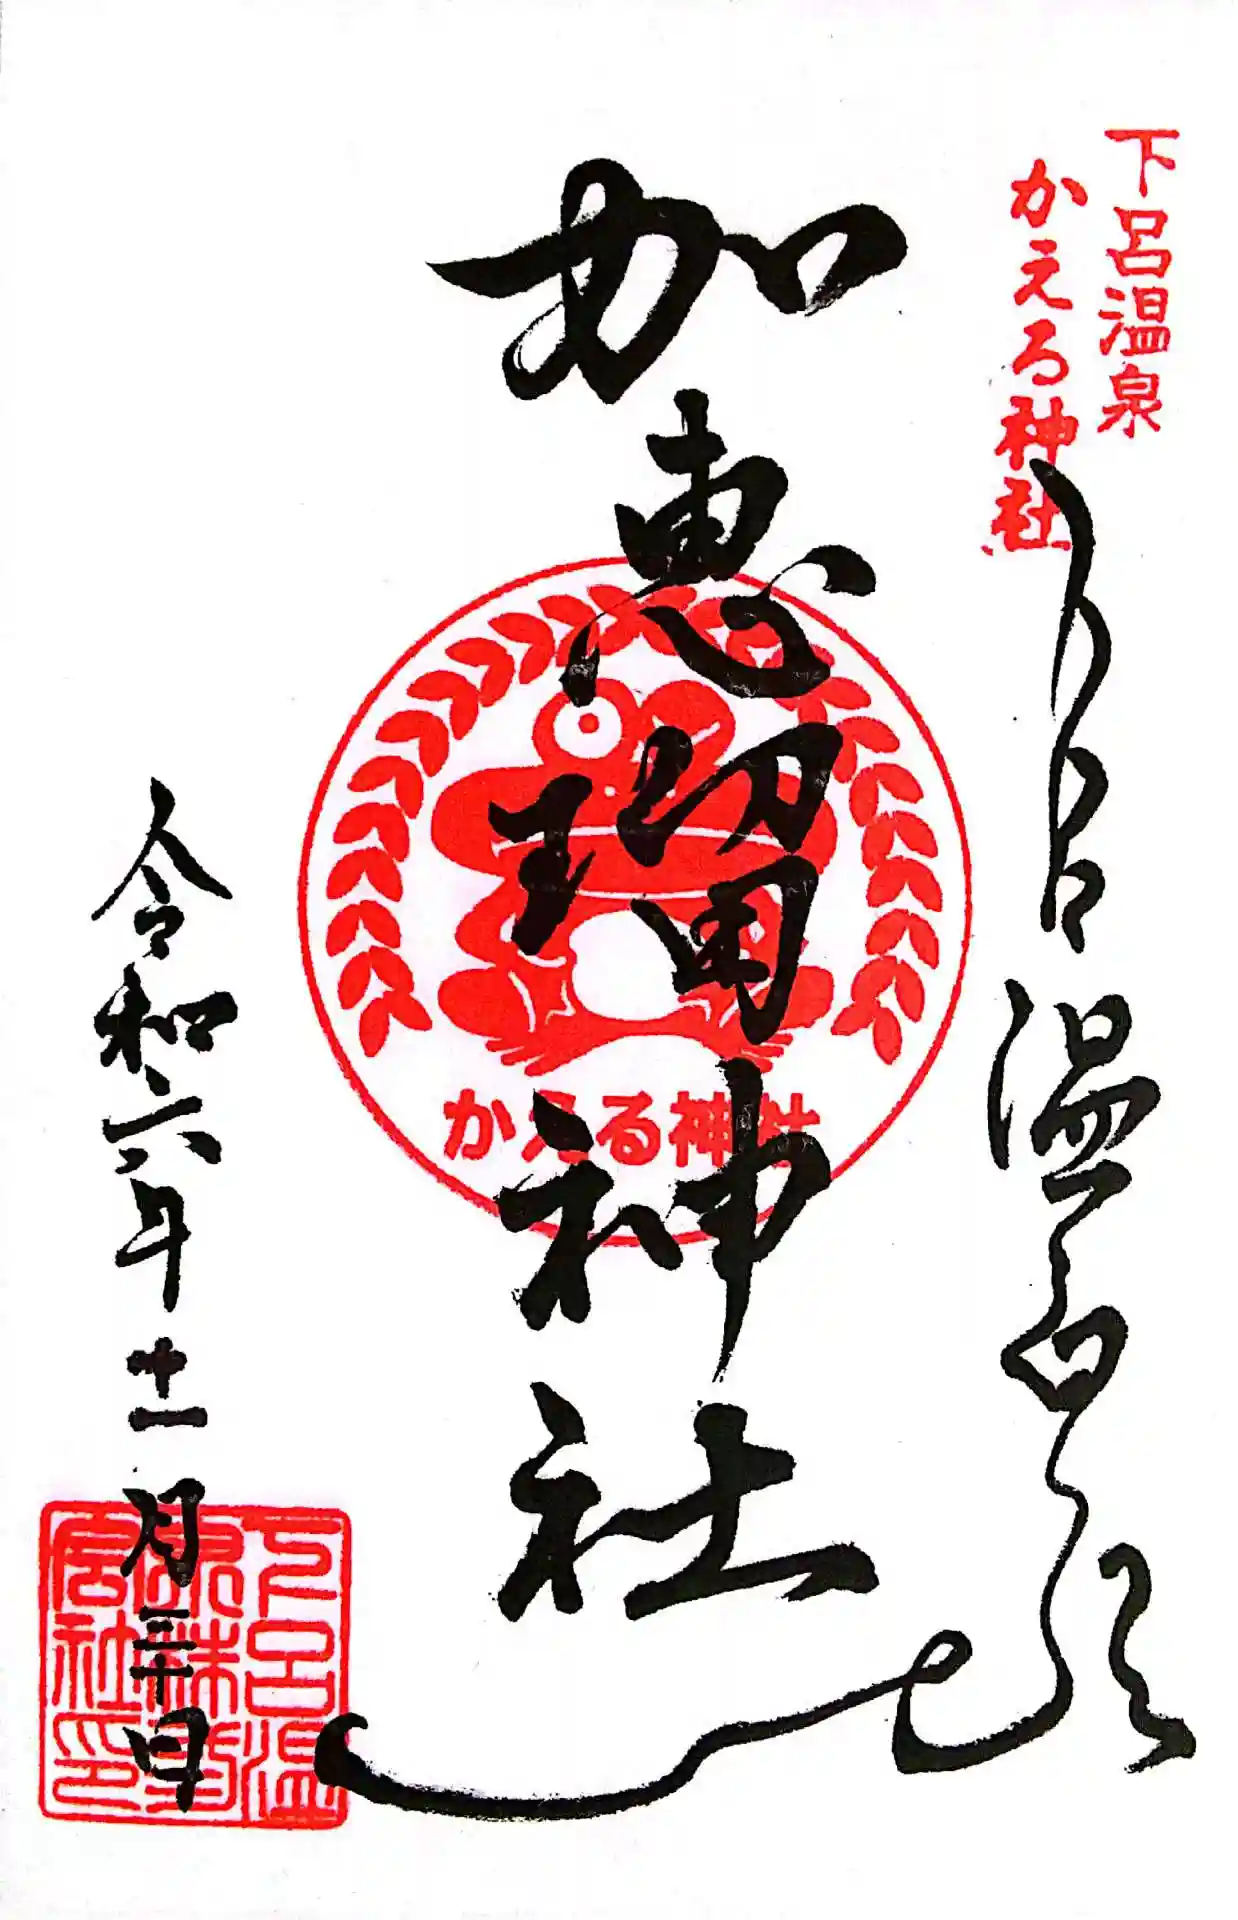 下呂温泉
かえる神社
下呂温泉
加恵瑠神社
かえる神社
令和六年十一月三十日
下呂温